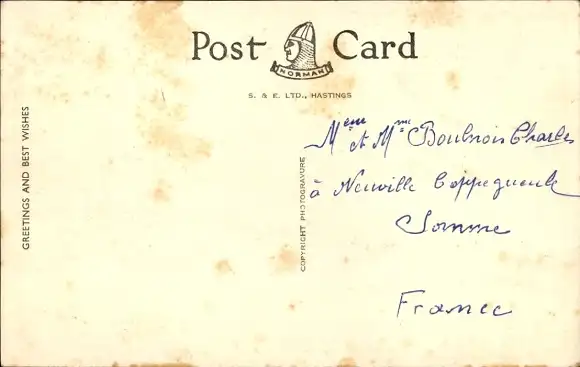 Post Card
NORMAN
S. & E. LTD., HASTINGS
GREETINGS AND BEST WISHES
COPYRIGHT PHOTOGRAVURE
et Mme Boulnois Charles
à Neuville Coppegueule
Somme
France